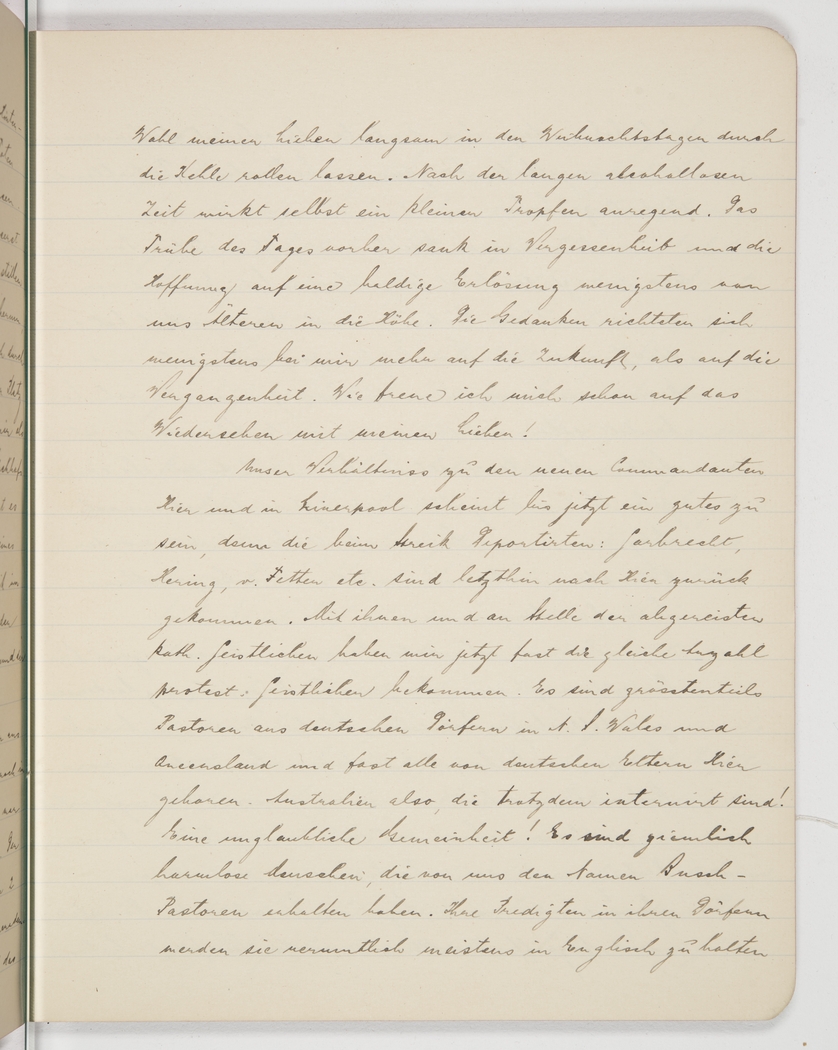 Wohl meiner Lieben langsam in den Weihnachtstagen durch
die Kehle rollen lassen. Nach der langen alcohollosen
Zeit wirkt selbst ein kleiner Tropfen anregend. Das
Trübe des Tages vorher sank in Vergessenheit und die
Hoffnung auf eine baldige Erlösung wenigstens von
uns Älteren in die Höhe. Die Gedanken richteten sich
wenigstens bei mir mehr auf die Zukunft, als auf die
Vergangenheit. Wie freue ich mich schon auf das
Wiedersehen mit meinen Lieben!
Unser Verhältniss zu den neuen Commandanten
Hier und in Liverpool scheint bis jetzt ein gutes zu
sein, denn die beim Streik Deportirten: Garbrecht,
Hering, v. Tetten etc. sind letzthin nach Hier zurück
gekommen. Mit ihnen und an Stelle der abgereisten
kath. Geistlichen haben wir jetzt fast die gleiche Anzahl
protest: Geistlichen bekommen. Es sind grösstenteils
Pastoren aus deutschen Dörfern in N. S. Wales und
Queensland und fast alle von deutschen Eltern Hier
geboren. Australien also, die trotzdem internirt sind!
Eine unglaubliche Gemeinheit! Es sind ziemlich
harmlose Menschen, die von uns den Namen Busch-
Pastoren erhalten haben. Ihre Predigten in ihren Dörfern
werden sie vermutlich meistens in Englisch zu halten